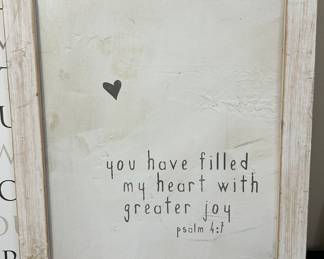 you have filled
my heart with
greater joy
psalm 4:7